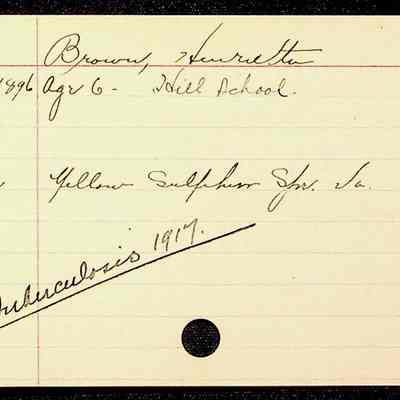 Brown, Henrietta
1896 Age 6- Hill School.
Yellow Sulphur Spr. Va.
Tuberculosis 1917.